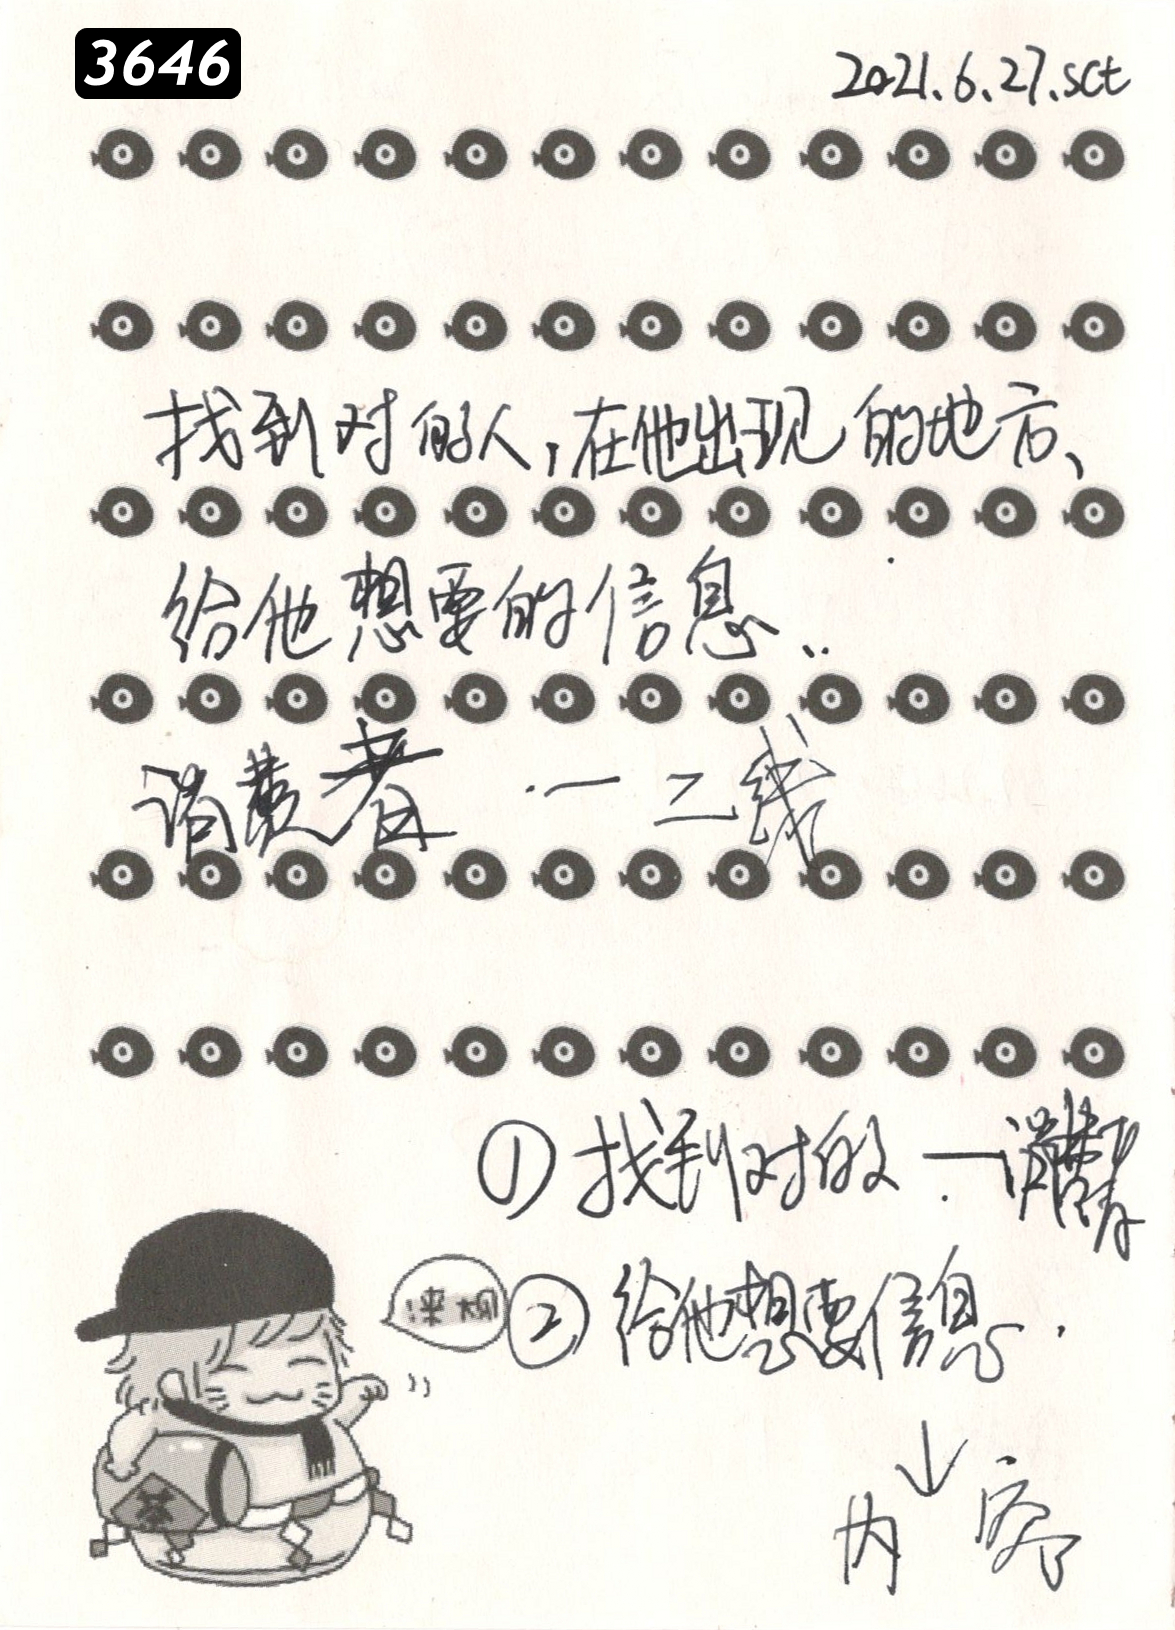 3646
2021.6.27.sct
找到对的人,在他出现的地方、
给他想要的信息、..
消费者 . 一 二线
① 找到对的 — 消费者
② 给他想要信息.
↓
内 容